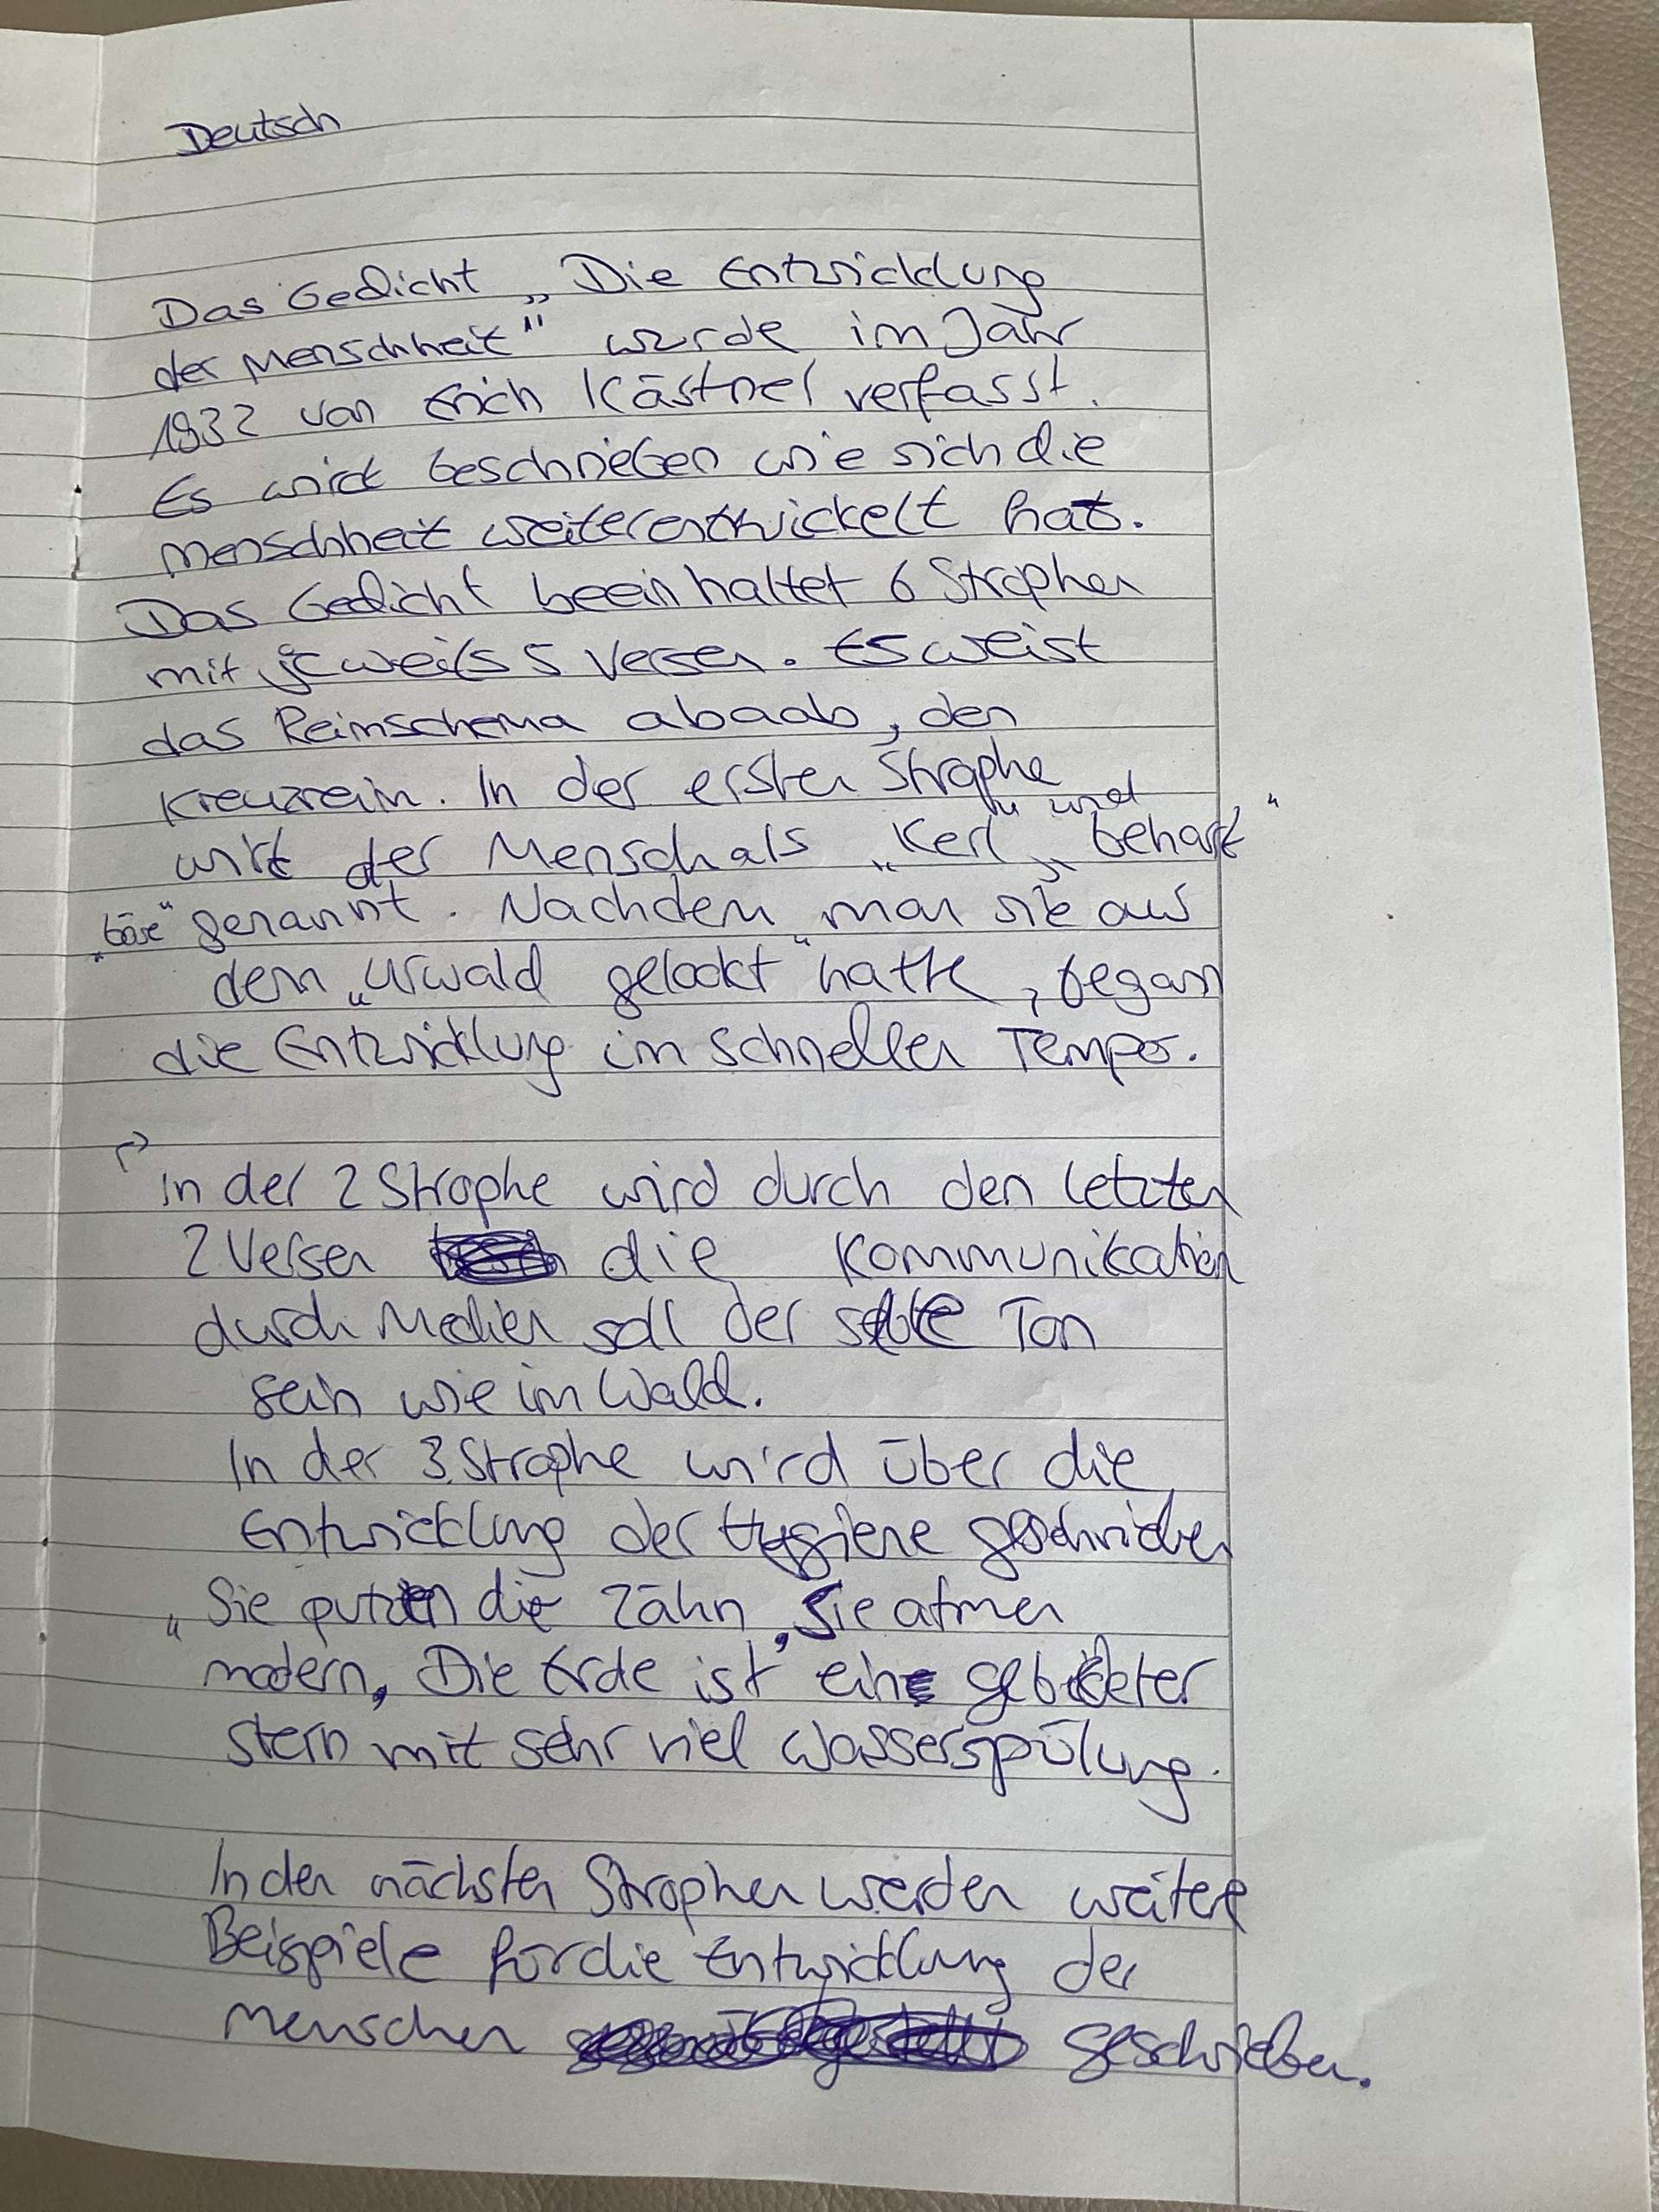 Deutsch
Das Gedicht „Die Entwicklung
der Menschheit" wurde im Jahr
1932 von Erich Kästner verfasst.
Es wird beschrieben wie sich die
Menschheit weiterentwickelt hat.
Das Gedicht beeinhaltet 6 Strophen
mit jeweils 5 Versen. Es weist
das Reimschema abaab, den
Kreuzreim. In der ersten Strophe
wird der Mensch als „Kerl" und „behart"
„böse" genannt. Nachdem man sie aus
dem „Urwald gelockt" hatte, began
die Entwicklung im schnellen Tempo.
In der 2 Strophe wird durch den letzten
2 Versen die Kommunikation
durch Medien soll der selbe Ton
sein wie im Wald.
In der 3. Strophe wird über die
Entwicklung der Hygiene geschrieben
„Sie putzen die Zähn, Sie atmen
modern, Die Erde ist ein gebildeter
stern mit sehr viel Wasserspülung.
In den nächsten Strophen werden weitere
Beispiele für die Entwicklung der
Menschen geschrieben.